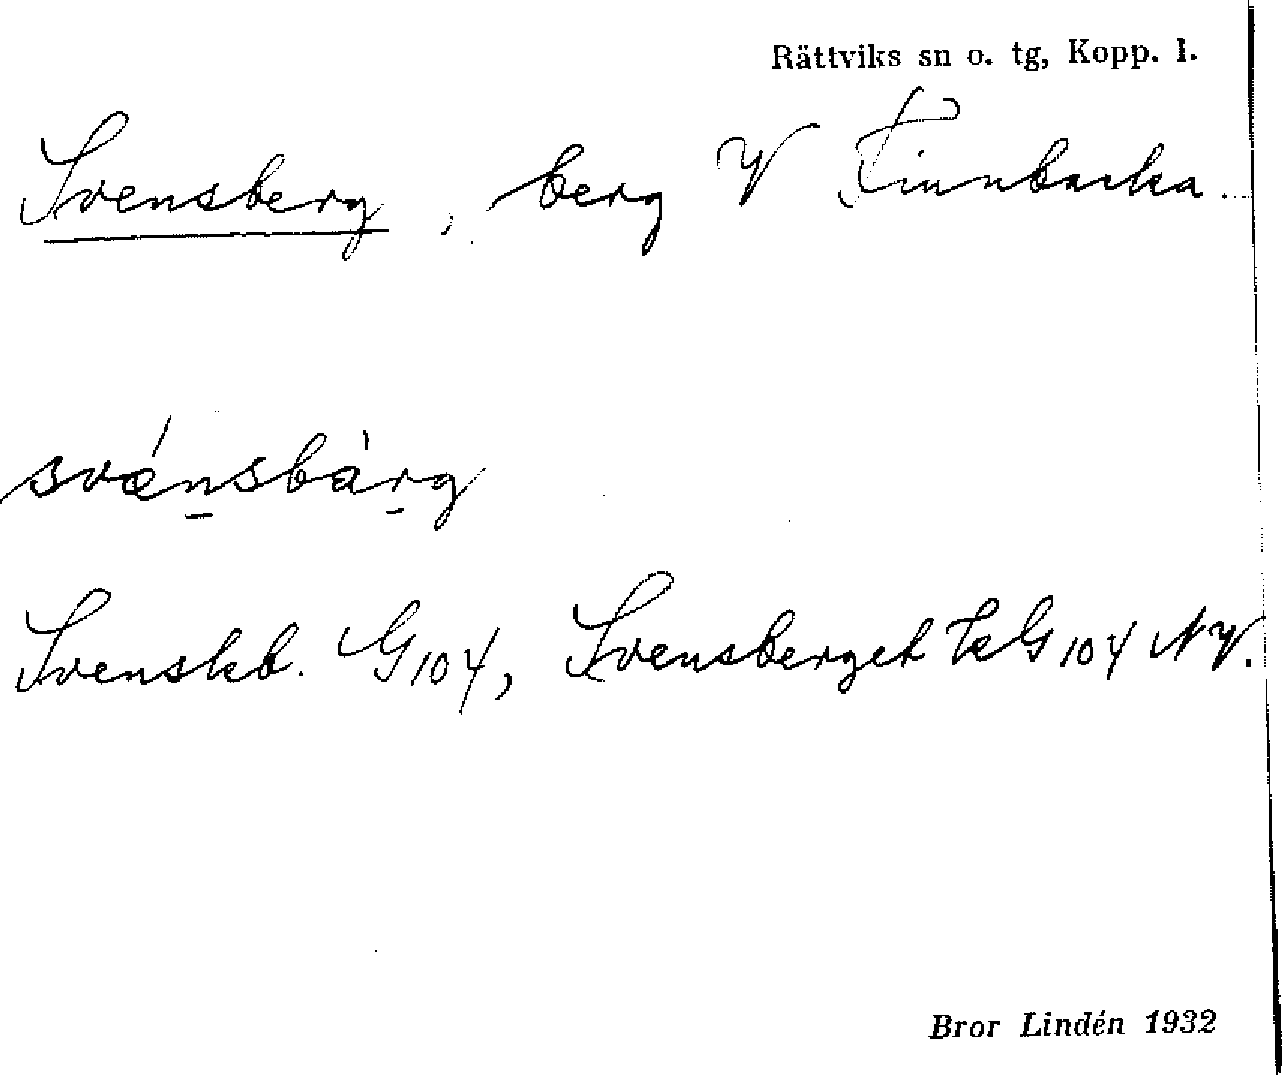 Rättviks sn o. tg, Kopp. l.
Svensberg, berg V Finnbacka
svǽnsbàrg
Svenskb. G104, Svensberget Hk G104 NV.
Bror Lindén 1932